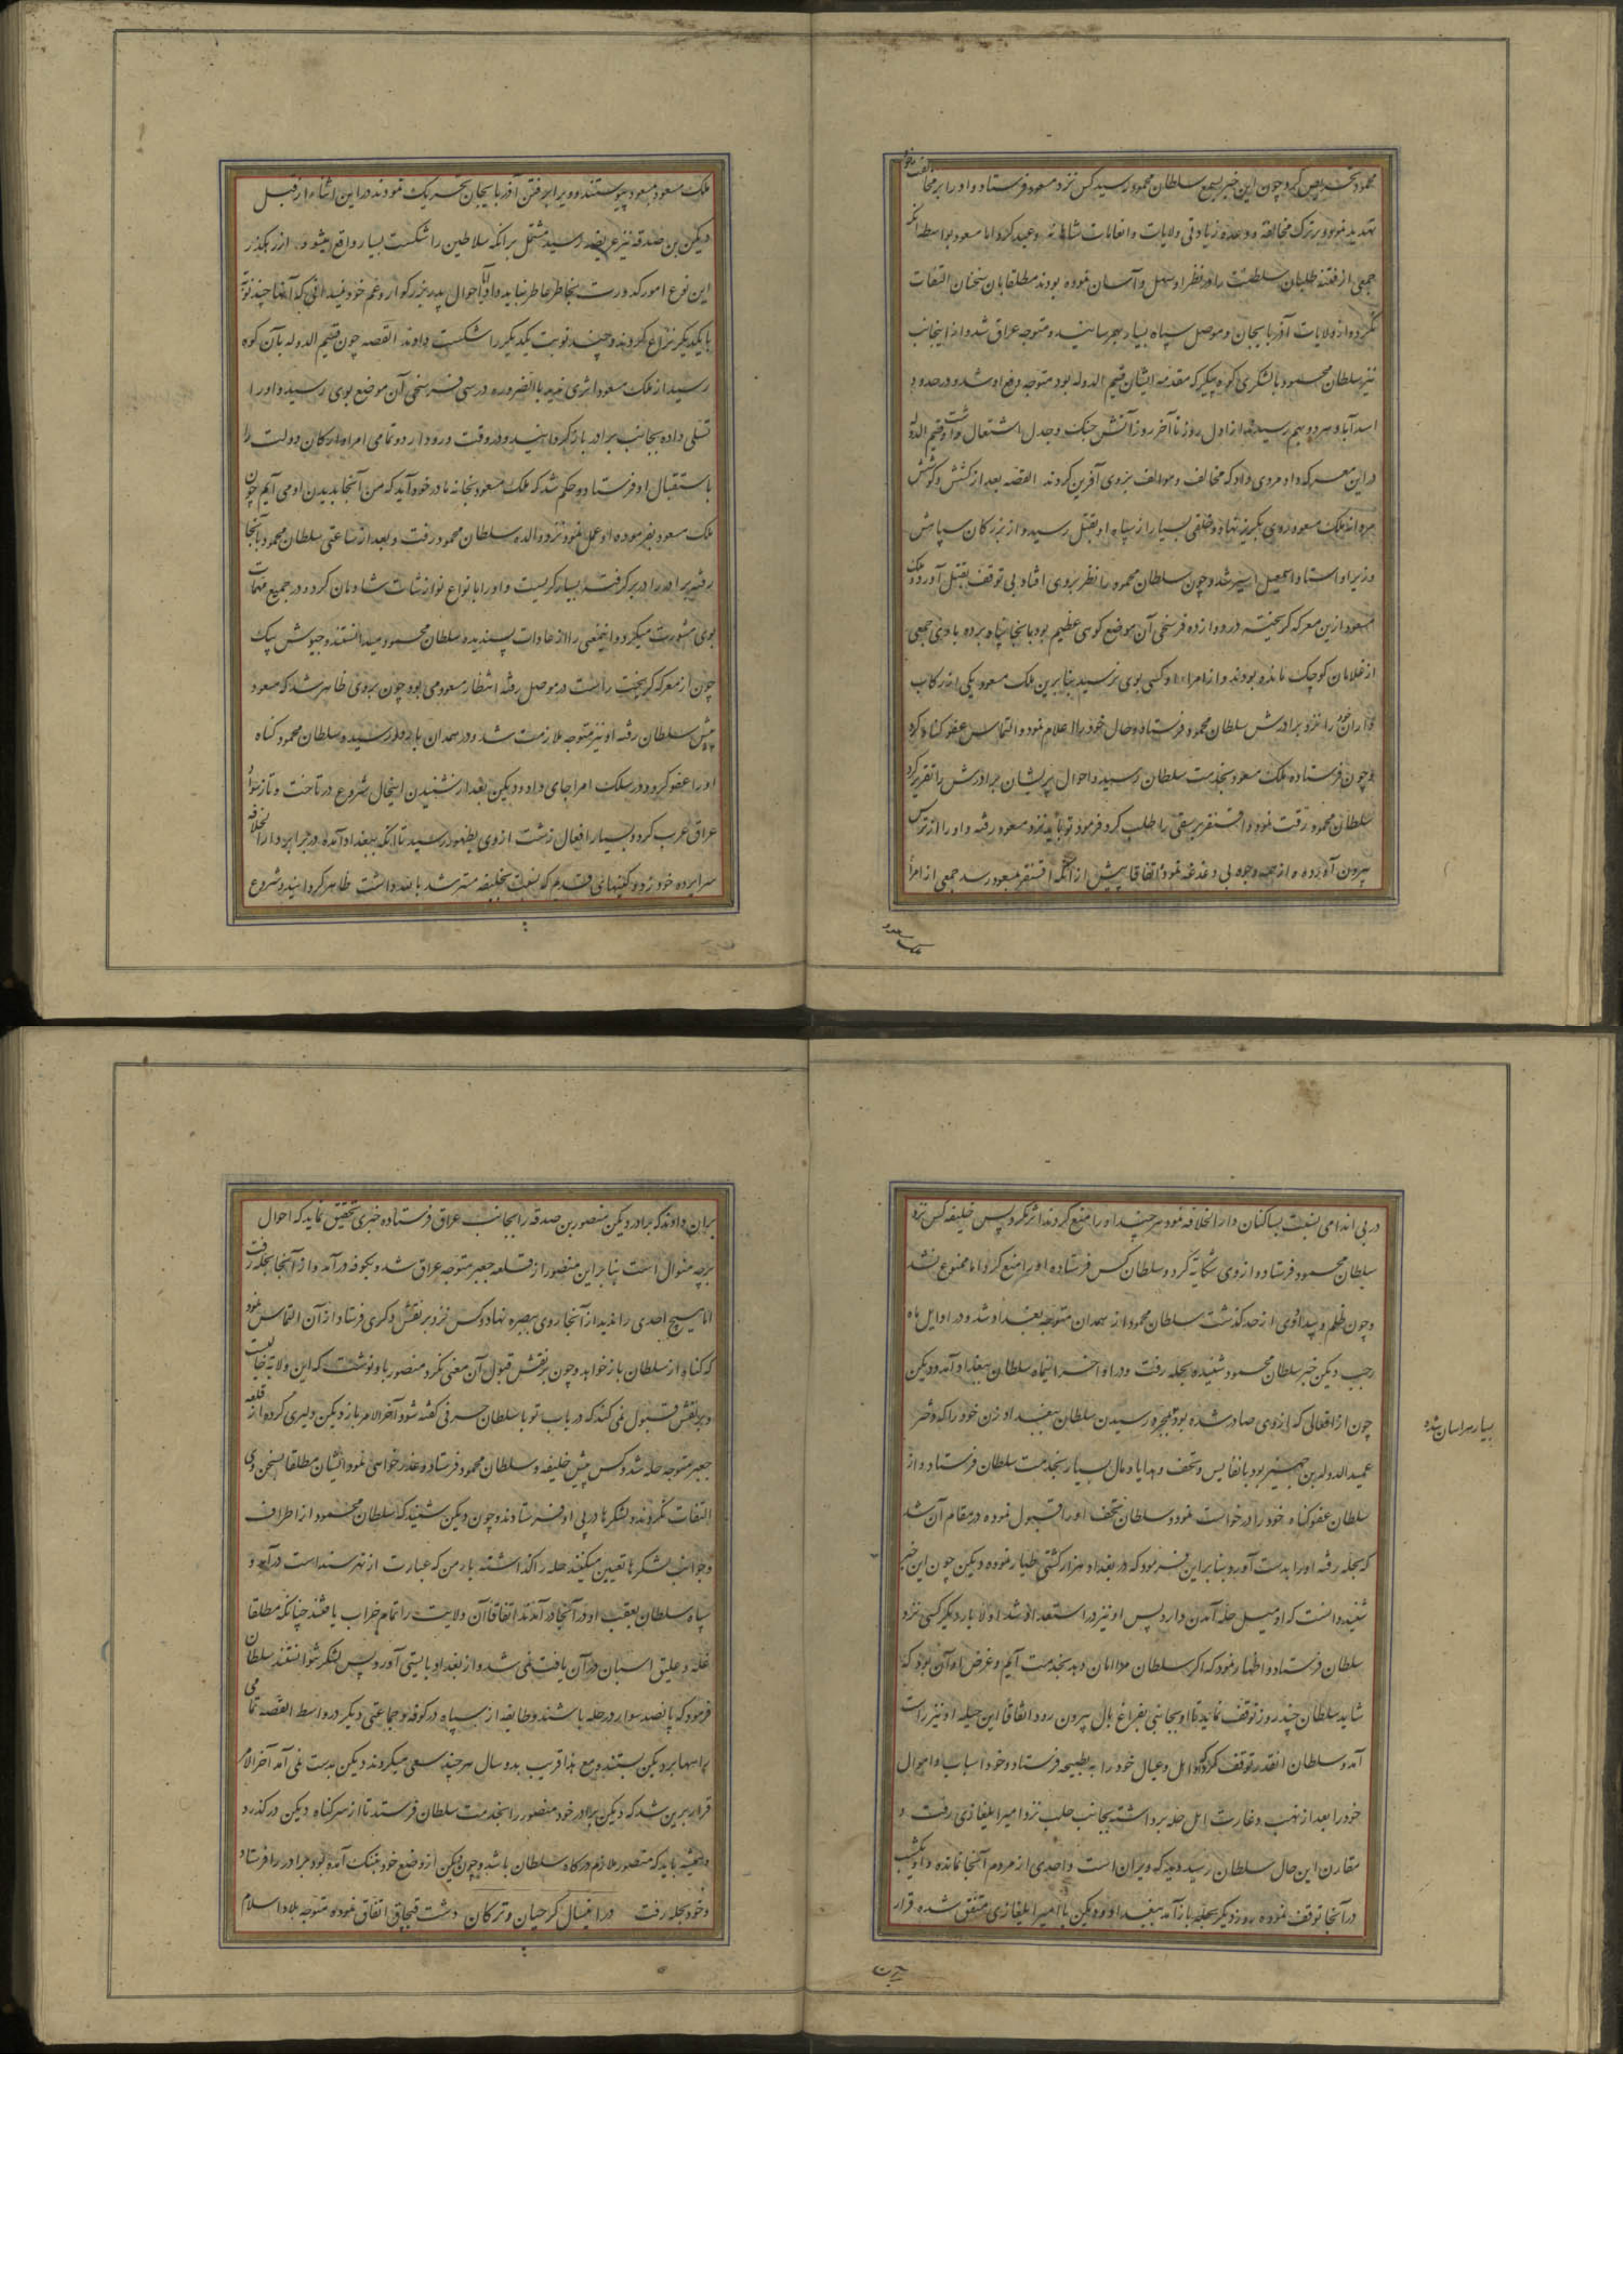 محمود تحریص کرد و چون این خبر بسمع سلطان محمود رسید کس نزد مسعود فرستاد و او را بر مخالفت خود
تهدید نمود و بر ترک مخالفت و وعده زیادتی ولایات و انعامات شاهانه وعید کرد اما مسعود بواسطه آنکه
جمعی از فتنه طلبان سلطنت را در نظر او سهل و آسان نموده بودند مطلقا بان سخنان التفات
نکرده از ولایات آذربایجان و موصل سپاه بسیار بهم رسانیده متوجه عراق شد و از اینجانب
نیز سلطان محمود با لشکری کوه پیکر که مقدمه ایشان قسیم الدوله بود متوجه دفع او شد و در حدود
اسدآباد هر دو بهم رسیدند از اول روز تا آخر روز آتش جنک و جدل اشتعال داشت و قسیم الدوله
در این معرکه داد مردی داد که مخالف و موالف بر وی آفرین کردند القصه بعد از کشش و کوشش
مردانه ملک مسعود روی بگریز نهاد و خلقی بسیار از سپاه او بقتل رسید و از بزرکان سپاهش
وزیر او استاد اسمعیل اسیر شد و چون سلطان محمود را نظر بروی افتاد بی توقف بقتل آورد و ملک
مسعود ازین معرکه گریخته در دوازده فرسخی آن موضع کوهی عظیم بود بانجا پناه برده با وی جمعی
از غلامان کوچک مانده بودند و از امراء او کسی بوی نرسید بنابرین ملک مسعود یکی از رکاب
داران خود را نزد برادرش سلطان محمود فرستاد و حال خود را اعلام نمود و التماس عفو کناه کرد
و چون فرستاده ملک مسعود بخدمت سلطان رسید و احوال پریشان برادرش را تقریر کرد
سلطان محمود رقت نمود و اقسنقر برسقی را طلب کرد و فرمود تو باید نزد مسعود رفته و او را از ترس
بیرون آورده از همه وجوه بی دغدغه نمود اتفاقا پیش از آنکه اقسنقر بمسعود رسد جمعی از امرا
ملک مسعود
ملک مسعود بمسعود پیوستند و ویرا بر رفتن آذربایجان تحریک نمودند در این اثناء از قبل
دبیس بن صدقه نیز عریضه رسید مشتمل بر انکه سلاطین را شکست بسیار واقع میشود از رهکذر
این نوع امور کدورت بخاطر عاطر نباید داد احوال پدر بزرکوار و عم خود نمیدانی که آنها چند نوبت
با یکدیگر نزاع کردند و چند نوبت یکدیگر را شکست دادند القصه چون قسیم الدوله بآن کوه
رسید از ملک مسعود اثری ندید بالضروره در سی فرسخی آن موضع بوی رسید و او را
تسلی داده بجانب برادر بازگردانید و در وقت ورود اردو تمامی امراء ارکان دولت را
باستقبال او فرستاد و حکم شد که ملک مسعود بخانه مادر خود آید که من آنجا بدیدن او می آیم چون
ملک مسعود بفرموده او عمل نمود نزد والده سلطان محمود رفت و بعد از ساعتی سلطان محمود بآنجا
رفته برادر را در بر گرفت بسیار گریست و او را بانواع نوازشات شادمان کرد و در جمیع مهمات
بوی مشورت میکرد و اینمعنی را از عادات پسندیده سلطان محمود میدانستند و جیوش بیک
چون از معرکه گریخت راست در موصل رفته انتظار مسعود می بود چون بروی ظاهر شد که مسعود
پیش سلطان رفته او نیز متوجه ملازمت شد و در همدان باردو رسیده سلطان محمود کناه
او را عفو کرد و در سلک امرا جای داد و دبیس بعد از شنیدن اینحال شروع در تاخت و تاراج
عراق عرب کرد و بسیار افعال زشت از وی بظهور رسید تا آنکه ببغداد آمده در برابر دار الخلافه
سراپرده خود زد و کینهای قدیم که نسبت بخلیفه مسترشد بالله داشت ظاهر کردانید و شروع
در بی اندامی نسبت بساکنان دار الخلافه نمود هر چند او را منع کردند اثر نکرد پس خلیفه کس نزد
سلطان محمود فرستاد و از وی شکایت کرد و سلطان کس فرستاده او را منع کرد اما ممنوع نشد
و چون ظلم و بیداد وی از حد گذشت سلطان محمود از همدان متوجه بغداد شد و در اوایل ماه
رجب دبیس خبر سلطان محمود شنیده بحله رفت و در اواخر اینماه سلطان ببغداد آمد و دبیس
چون از افعالی که از وی صادر شده بود بمجرد رسیدن سلطان ببغداد زن خود را که دختر
بسیار هراسان شده
عمید الدوله بن جهیر بود با نفایس و تحف و هدایا و مال بسیار بخدمت سلطان فرستاد و از
سلطان عفو کناه خود را درخواست نمود و سلطان تحف او را قبول نموده در مقام آن شد
که بحله رفته او را بدست آورد و بنابراین فرمود که در بغداد هزار کشتی طیار نموده دبیس چون این خبر
شنید دانست که او میل حله آمدن دارد پس او نیز در استعداد شد اولا بار دیگر کسی نزد
سلطان فرستاد و اظهار نمود که اگر سلطان مرا امان دهد بخدمت آیم و غرض او آن بود که
شاید سلطان چند روز توقف نماید تا او بجانبی بفراغ بال بیرون رود اتفاقا این حیله او نیز راست
آمد و سلطان انقدر توقف کرد که او اهل و عیال خود را به بطیحه فرستاد و خود اسباب و اموال
خود را بعد از نهب و غارت اهل حله برداشته بجانب حلب نزد امیر ایلغازی رفت و
مقارن این حال سلطان رسید دید که ویران است و احدی از مردم آنجا نمانده و او یکشب
در آنجا توقف نموده روز دیگر بحله باز آمد ببغداد و دبیس با امیر ایلغازی متفق شده قرار
برین
بران دادند که برادر دبیس منصور بن صدقه را بجانب عراق فرستاده خبری تحقیق نماید که احوال
بر چه منوال است بنابراین منصور از قلعه جعبر متوجه عراق شد و بکوفه در آمد و از آنجا بحله رفت
اما هیچ احدی را ندید از آنجا روی ببصره نهاد و کس نزد برنقش ذکری فرستاد از آن التماس نمود
که کناه او از سلطان باز خواهد و چون برنقش قبول آن معنی نکرد منصور باو نوشت که این ولایة
و برنقش قبول نمی کند که در باب تو با سلطان حرفی گفته شود آخر الامر باز دبیس دلیری کرده از قلعه
جعبر متوجه حله شد و کس پیش خلیفه و سلطان محمود فرستاد و عذر خواهی نمود ایشان مطلقا بسخن وی
التفات نکردند و لشکرها در پی او فرستادند و چون دبیس شنید که سلطان محمود از اطراف
و جوانب لشکرها تعیین میکنند حله را گذاشته که عبارت از نهر سند است در آمد و
سپاه سلطان بعقب او در آنجا در آمدند اتفاقا آن ولایت را تمام خراب یافتند چنانکه مطلقا
غله و علیق اسبان در آن یافت نمی شد و از بغداد بایستی آورد پس لشکر نتوانستند سلطان
فرمود که پانصد سوار در حله باشند و طایفه از سپاه در کوفه و جماعتی دیگر در واسط القصه تمامی
راهها بر دبیس بستند و مع هذا قریب بدو سال هر چند سعی میکردند دبیس بدست نمی آمد آخر الامر
قرار برین شد که دبیس برادر خود منصور را بخدمت سلطان فرستد تا از سر کناه دبیس در گذرد
و همیشه باید که منصور ملازم درکاه سلطان باشد و چون دبیس از وضع خود بتنک آمده بود برادر را فرستاد
و خود بحله رفت در اینسال کرجیان و ترکان دشت قبچاق اتفاق نموده متوجه بلاد اسلام